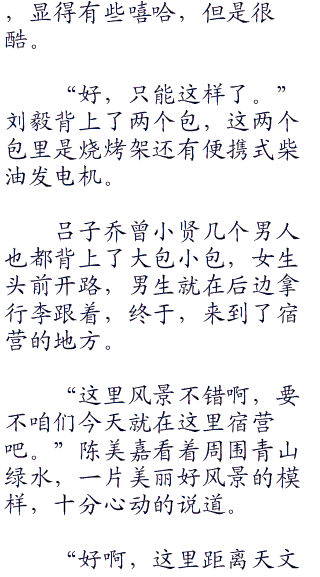 ，显得有些嘻哈，但是很
酷。
“好，只能这样了。”
刘毅背上了两个包，这两个
包里是烧烤架还有便携式柴
油发电机。
吕子乔曾小贤几个男人
也都背上了大包小包，女生
头前开路，男生就在后边拿
行李跟着，终于，来到了宿
营的地方。
“这里风景不错啊，要
不咱们今天就在这里宿营
吧。”陈美嘉看着周围青山
绿水，一片美丽好风景的模
样，十分心动的说道。
“好啊，这里距离天文